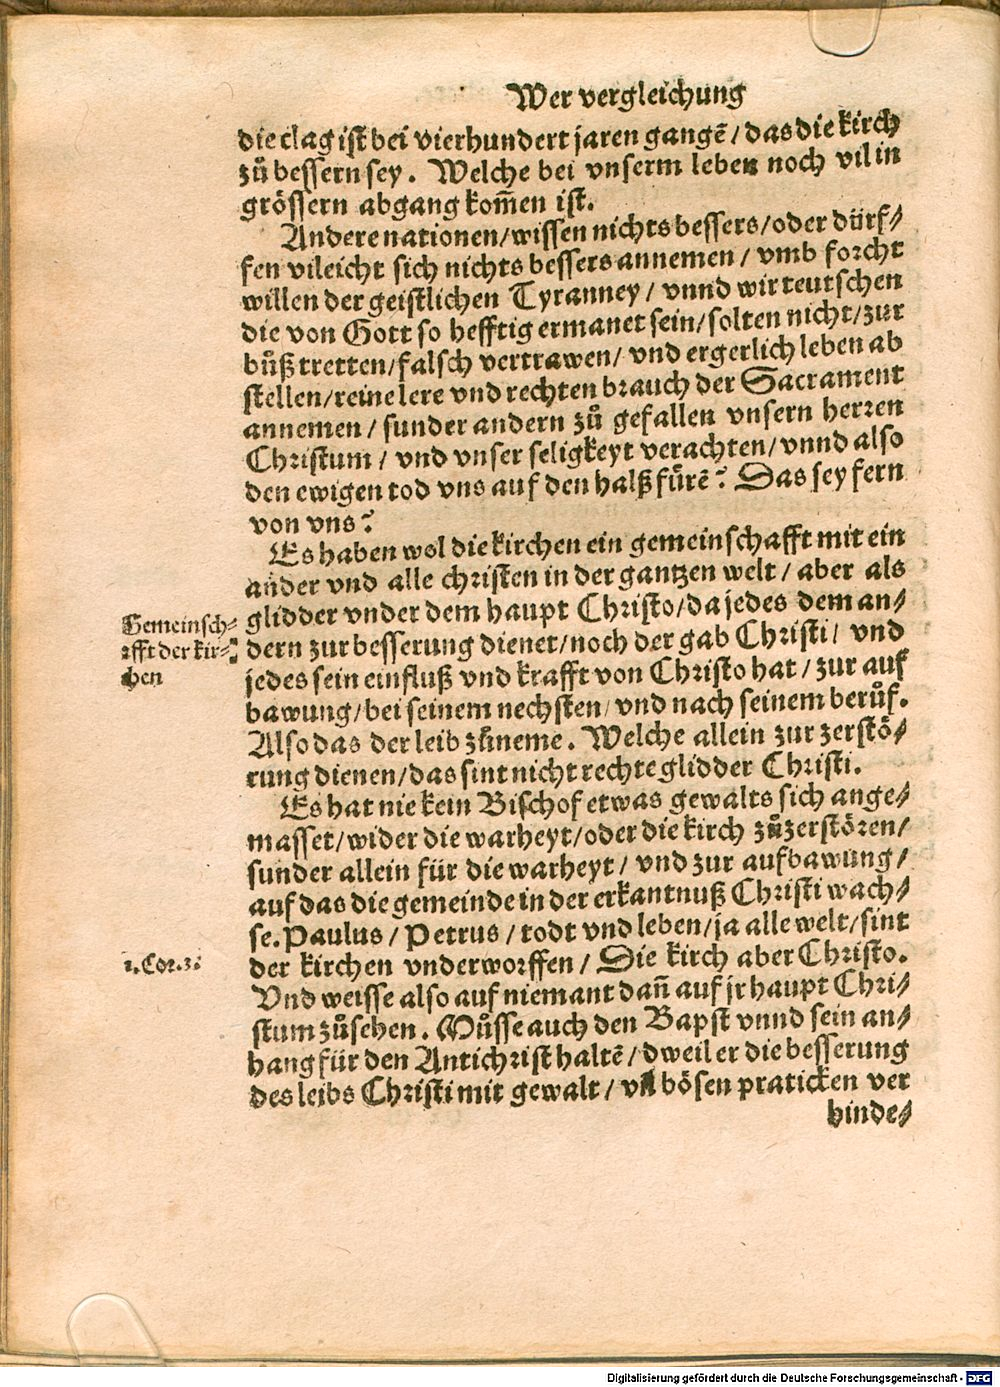 Wer vergleichung
die clag ist bei vierhundert jaren gangē/das die kirch
zů bessern sey. Welche bei vnserm leben noch vil in
grössern abgang kom̄en ist.
Andere nationen/wissen nichts bessers/oder dürf⸗
fen vileicht sich nichts bessers annemen/ vmb forcht
willen der geistlichen Tyranney/ vnnd wir teutschen
die von Gott so hefftig ermanet sein/solten nicht/zur
bůß tretten/falsch vertrawen/ vnd ergerlich leben ab
stellen/reine lere vnd rechten brauch der Sacrament
annemen/ sunder andern zů gefallen vnsern herren
Christum/ vnd vnser seligkeyt verachten/ vnnd also
den ewigen tod vns auf den halß fürē? Das sey fern
von vns?
Es haben wol die kirchen ein gemeinschafft mit ein
ander vnd alle christen in der gantzen welt/ aber als
Gemeinsch⸗
afft der kir⸗
chen
glidder vnder dem haupt Christo/da jedes dem an⸗
dern zur besserung dienet/noch der gab Christi/ vnd
jedes sein einfluß vnd krafft von Christo hat/ zur auf
bawung/bei seinem nechsten/ vnd nach seinem berůf.
Also das der leib zůneme. Welche allein zur zerstö⸗
rung dienen/das sint nicht rechte glidder Christi.
Es hat nie kein Bischof etwas gewalts sich ange⸗
masset/wider die warheyt/oder die kirch zůzerstören/
sunder allein für die warheyt/ vnd zur aufbawung/
auf das die gemeinde in der erkantnuß Christi wach⸗
se. Paulus/ Petrus/ todt vnd leben/ja alle welt/sint
1. Cor. 3.
der kirchen vnderworffen/ Die kirch aber Christo.
Vnd weisse also auf niemant dan̄ auf jr haupt Chri⸗
stum zůsehen. Můsse auch den Bapst vnnd sein an⸗
hang für den Antichrist haltē/ dweil er die besserung
des leibs Christi mit gewalt/ vn̄ bösen praticken ver
hinde⸗
Digitalisierung gefördert durch die Deutsche Forschungsgemeinschaft - DFG